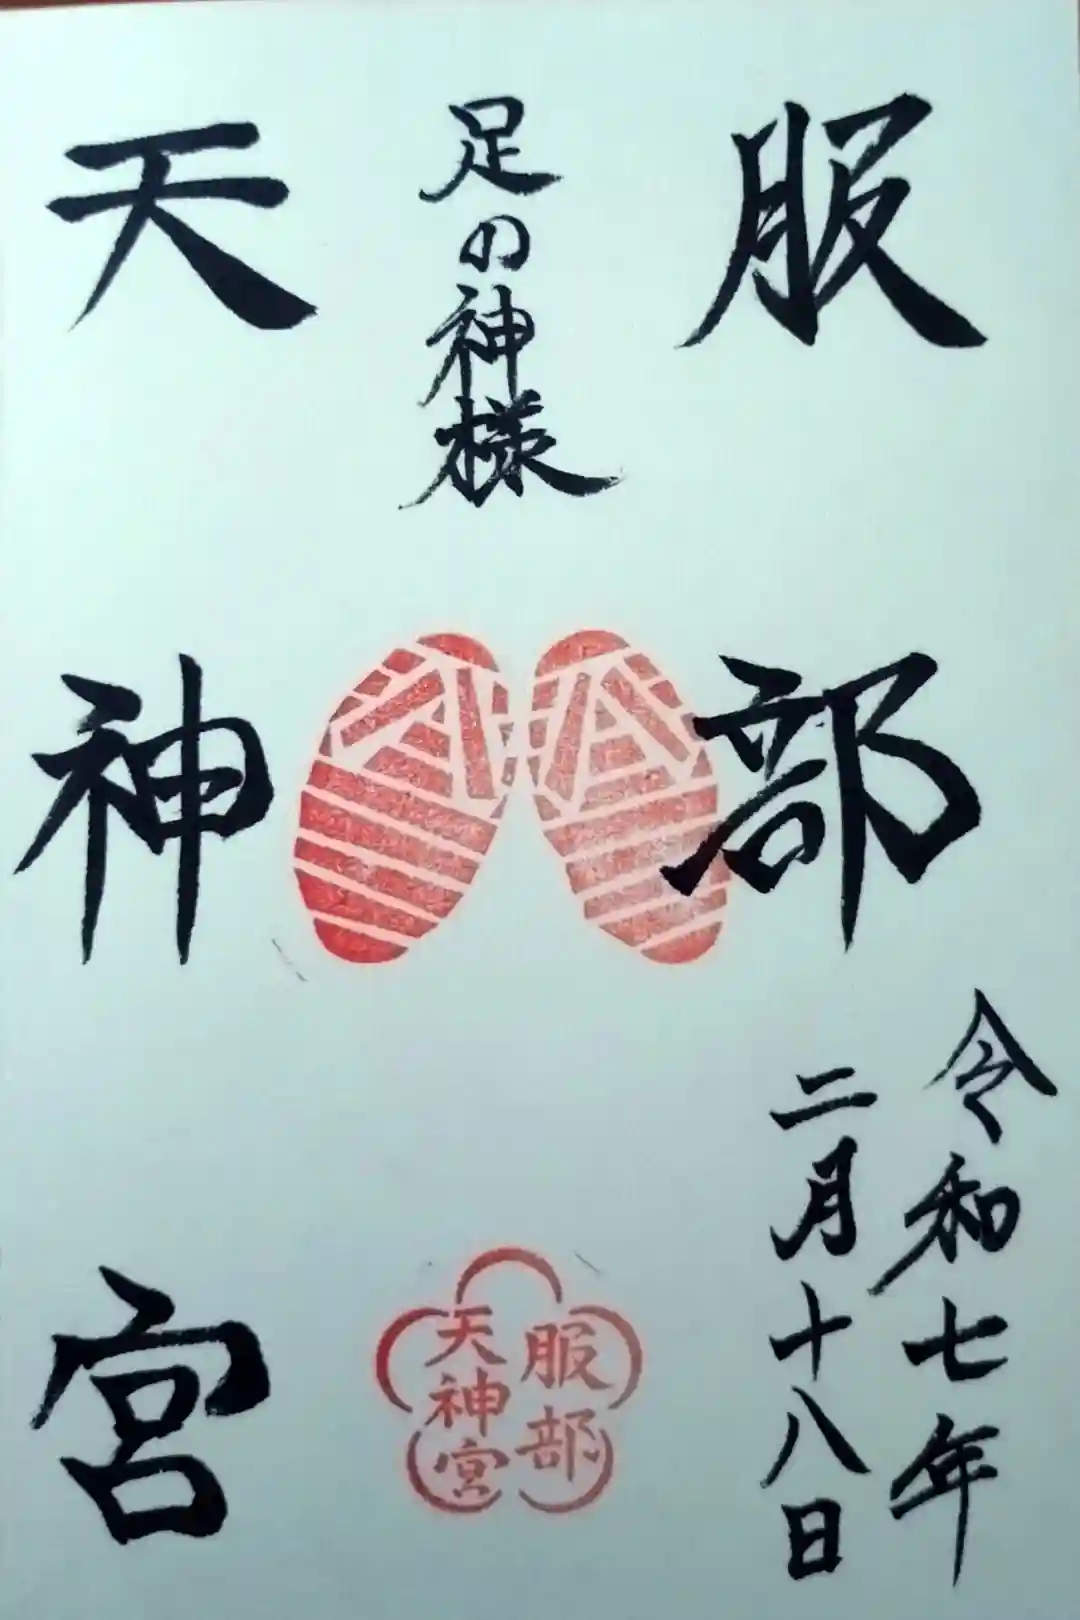 服部
足の神様
天神宮
令和七年
二月十八日
服部
天神宮